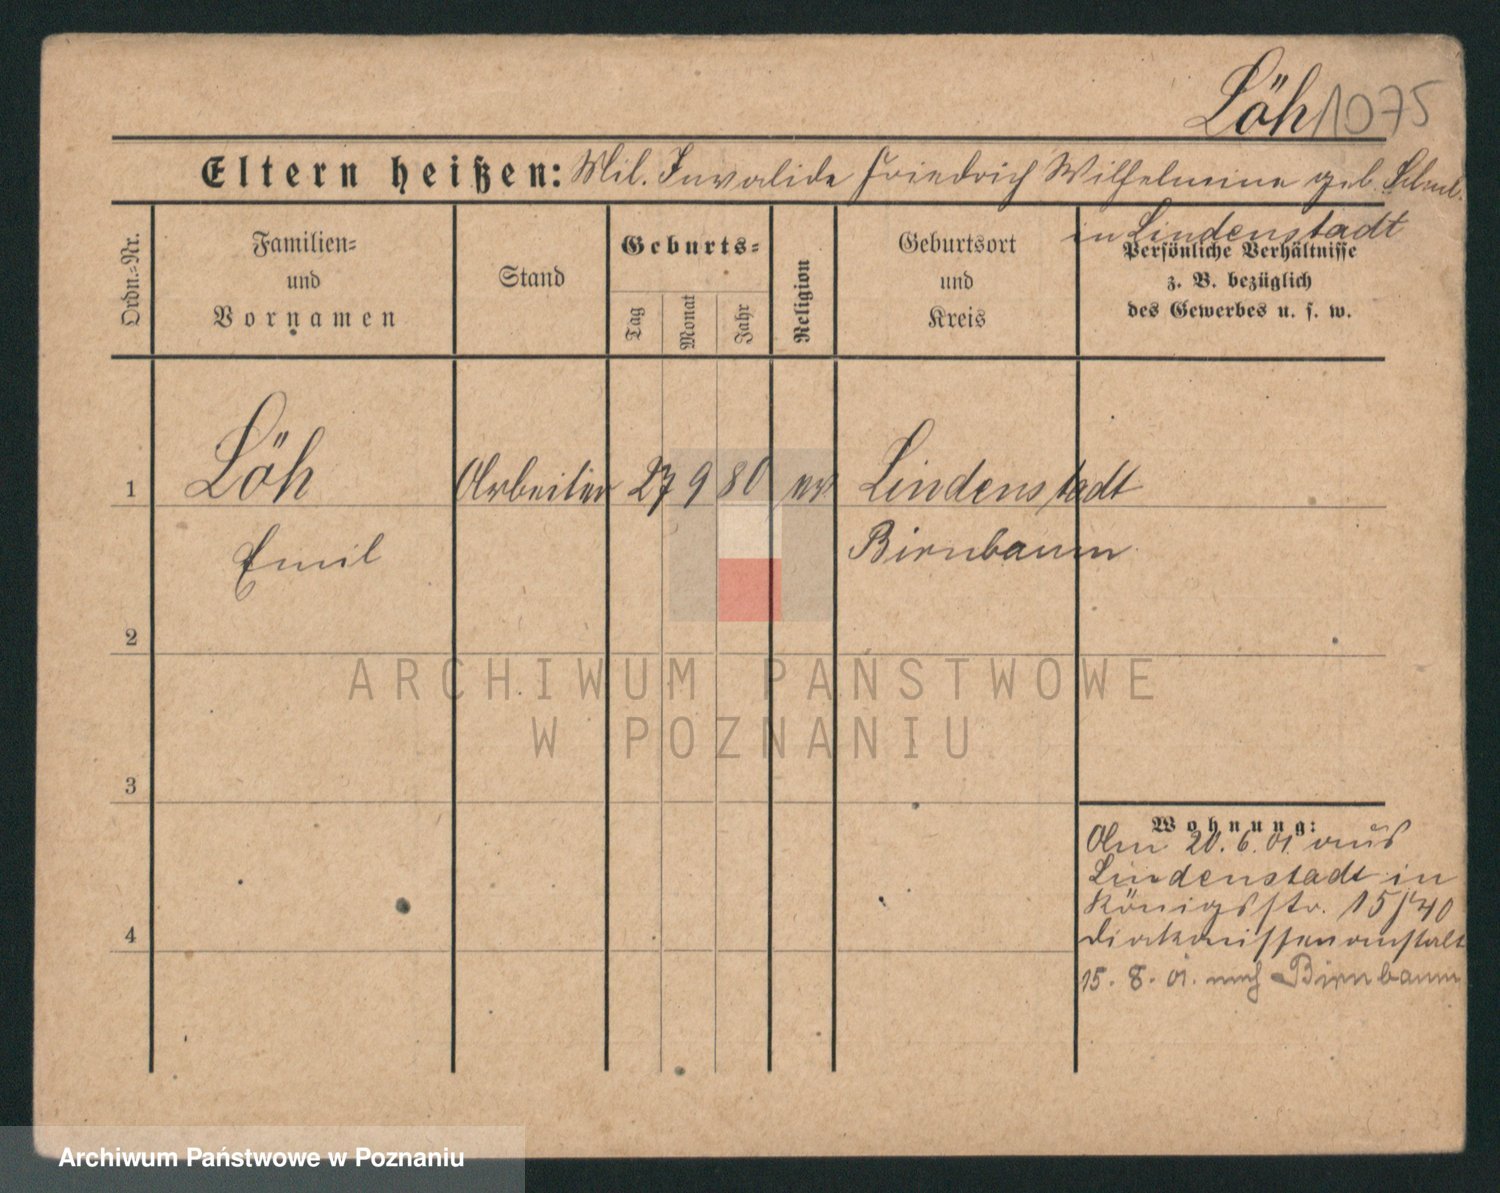 Löh 1075
Eltern heißen: Mil. Invalide Friedrich Wilhelmine geb.
in Lindenstadt
Ordn.-Nr.
Familien- und Vornamen
Stand
Geburts-
Tag
Monat
Jahr
Religion
Geburtsort und Kreis
Persönliche Verhältnisse
z. B. bezüglich
des Gewerbes u. s. w.
1 Löh Arbeiter 27 9 80 ev Lindenstadt
Emil Birnbaum
2
ARCHIWUM PAŃSTWOWE
W POZNANIU
3
Wohnung:
Am 20. 6. 01. aus
Lindenstadt in
Königsstr. 15/40
Diakonissenanstalt
4
15. 8. 01. nach Birnbaum
Archiwum Państwowe w Poznaniu